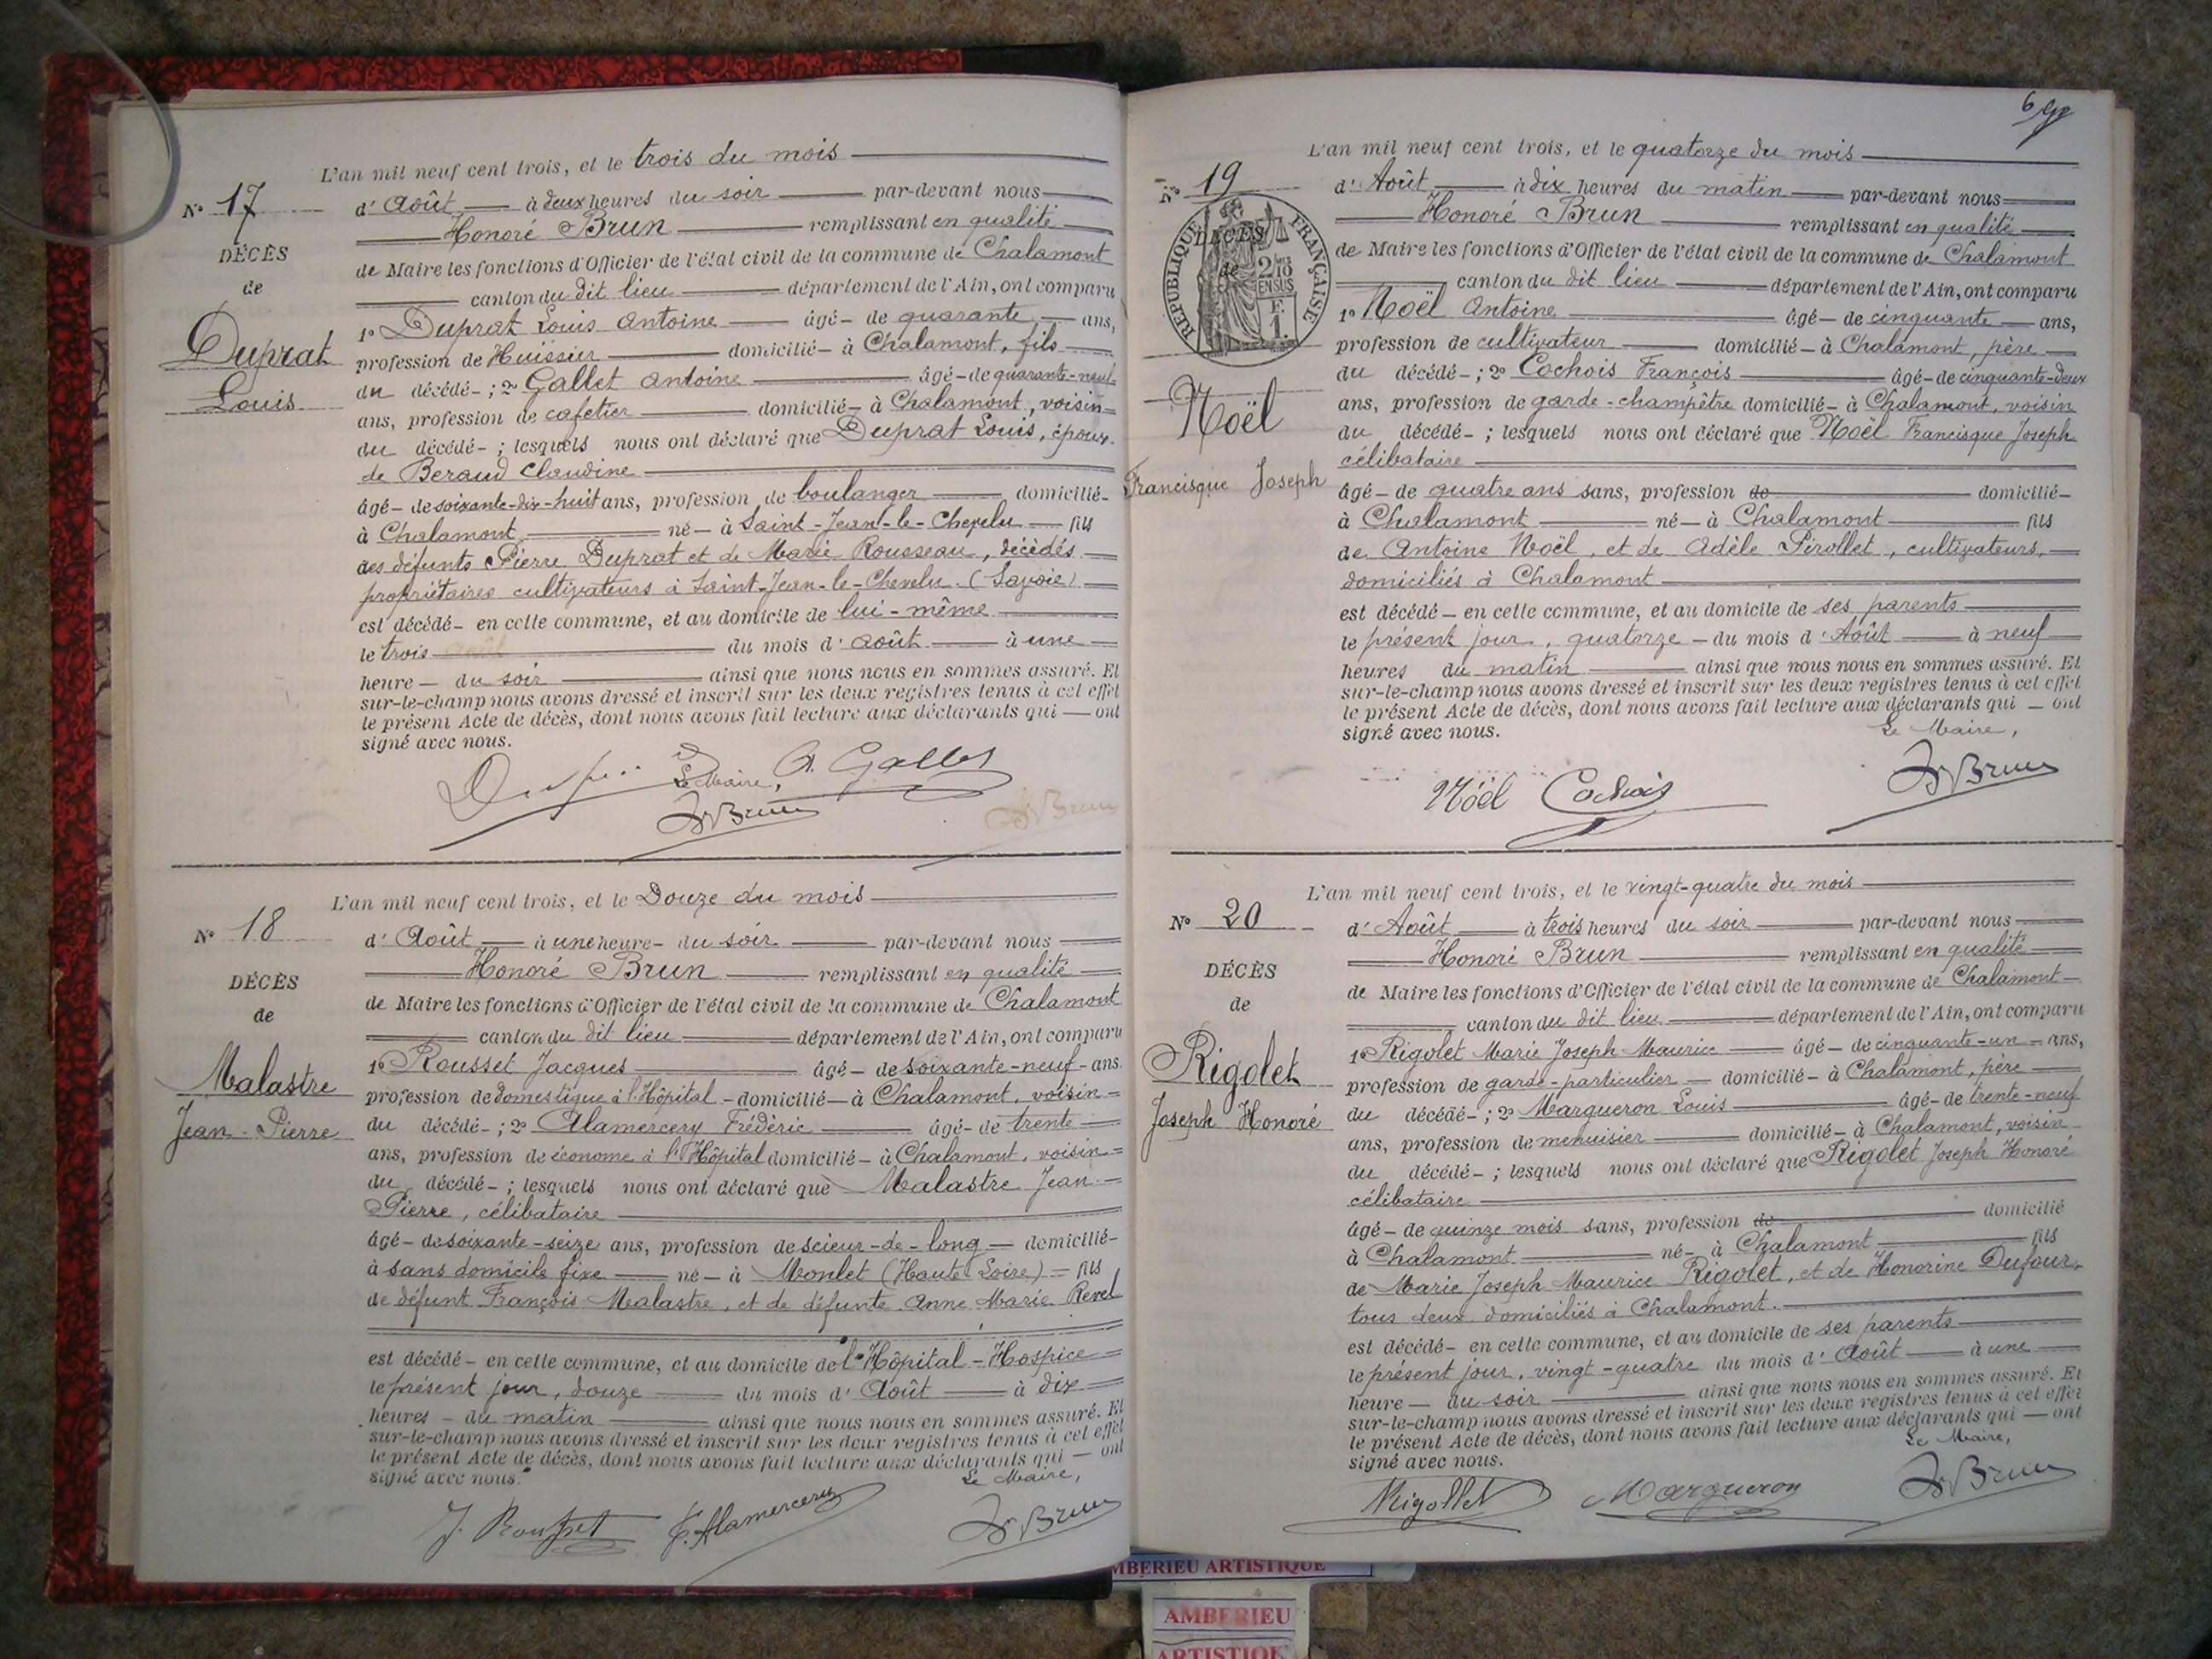 L'an mil neuf cent trois, et le trois du mois
N° 17
d' Août à deux heures du soir par-devant nous
Honoré Brun remplissant en qualité
DÉCÈS
de Maire les fonctions d'Officier de l'état civil de la commune de Chalamont
de
canton du dit lieu département de l'Ain, ont comparu
1° Duprat Louis Antoine âgé de quarante ans,
Duprat
profession de Huissier domicilié à Chalamont, fils
Louis
du décédé ; 2° Gallet Antoine âgé de quarante-neuf
ans, profession de cafetier domicilié à Chalamont, voisin
du décédé ; lesquels nous ont déclaré que Duprat Louis, époux
de Beraud Claudine
âgé de soixante-dix-huit ans, profession de boulanger domicilié
à Chalamont né à Saint-Jean-le-Chevelu fils
des défunts Pierre Duprat et de Marie Rousseau, décédés
propriétaires cultivateurs à Saint-Jean-le-Chevelu (Savoie)
est décédé en cette commune, et au domicile de lui-même
le trois du mois d' Août à une
heure du soir ainsi que nous nous en sommes assuré. Et
sur-le-champ nous avons dressé et inscrit sur les deux registres tenus à cet effet
le présent Acte de décès, dont nous avons fait lecture aux déclarants qui ont
signé avec nous.
Le Maire, A. Gallet
H Brun
H Brun
L'an mil neuf cent trois, et le Douze du mois
N° 18
d' Août à une heure du soir par-devant nous
Honoré Brun remplissant en qualité
DÉCÈS
de Maire les fonctions d'Officier de l'état civil de la commune de Chalamont
de
canton du dit lieu département de l'Ain, ont comparu
1° Rousset Jacques âgé de soixante-neuf ans.
Malastre
profession de domestique à l'Hôpital domicilié à Chalamont, voisin
Jean-Pierre
du décédé ; 2° Alamercery Frédéric âgé de trente
ans, profession de économe à l'Hôpital domicilié à Chalamont, voisin
du décédé ; lesquels nous ont déclaré que Malastre Jean
Pierre, célibataire
âgé de soixante-seize ans, profession de scieur-de-long domicilié
à sans domicile fixe né à Monlet (Haute Loire) fils
de défunt François Malastre, et de défunte Anne Marie Revel
est décédé en cette commune, et au domicile de l'Hôpital-Hospice
le présent jour, douze du mois d' Août à dix
heures du matin ainsi que nous nous en sommes assuré. Et
sur-le-champ nous avons dressé et inscrit sur les deux registres tenus à cet effet
le présent Acte de décès, dont nous avons fait lecture aux déclarants qui ont
signé avec nous.
Le Maire,
J. Rousset F. Alamercery H Brun
6
L'an mil neuf cent trois, et le quatorze du mois
N° 19
d' Août à dix heures du matin par-devant nous
Honoré Brun remplissant en qualité
RÉPUBLIQUE FRANÇAISE
DÉCÈS
de
2/10 EN SUS
F. 1.
de Maire les fonctions d'Officier de l'état civil de la commune de Chalamont
canton du dit lieu département de l'Ain, ont comparu
1° Noël Antoine âgé de cinquante ans,
profession de cultivateur domicilié à Chalamont, père
du décédé ; 2° Cochois François âgé de cinquante-deux
Noël
ans, profession de garde-champêtre domicilié à Chalamont, voisin
du décédé ; lesquels nous ont déclaré que Noël Francisque Joseph
célibataire
Francisque Joseph
âgé de quatre ans sans, profession de domicilié
à Chalamont né à Chalamont fils
de Antoine Noël, et de Adèle Pérollet, cultivateurs,
domiciliés à Chalamont
est décédé en cette commune, et au domicile de ses parents
le présent jour, quatorze du mois d' Août à neuf
heures du matin ainsi que nous nous en sommes assuré. Et
sur-le-champ nous avons dressé et inscrit sur les deux registres tenus à cet effet
le présent Acte de décès, dont nous avons fait lecture aux déclarants qui ont
signé avec nous.
Le Maire,
Noël Cochois H Brun
L'an mil neuf cent trois, et le vingt-quatre du mois
N° 20
d' Août à trois heures du soir par-devant nous
Honoré Brun remplissant en qualité
DÉCÈS
de Maire les fonctions d'Officier de l'état civil de la commune de Chalamont
de
canton du dit lieu département de l'Ain, ont comparu
1° Rigolet Marie Joseph Maurice âgé de cinquante-un ans,
Rigolet
profession de garde-particulier domicilié à Chalamont, père
Joseph Honoré
du décédé ; 2° Margueron Louis âgé de trente-neuf
ans, profession de menuisier domicilié à Chalamont, voisin
du décédé ; lesquels nous ont déclaré que Rigolet Joseph Honoré
célibataire
âgé de quinze mois sans, profession de domicilié
à Chalamont né à Chalamont fils
de Marie Joseph Maurice Rigolet, et de Honorine Dufour,
tous deux domiciliés à Chalamont.
est décédé en cette commune, et au domicile de ses parents
le présent jour, vingt-quatre du mois d' Août à une
heure du soir ainsi que nous nous en sommes assuré. Et
sur-le-champ nous avons dressé et inscrit sur les deux registres tenus à cet effet
le présent Acte de décès, dont nous avons fait lecture aux déclarants qui ont
signé avec nous.
Le Maire,
Rigollet Margueron H Brun
AMBERIEU ARTISTIQUE
AMBERIEU
ARTISTIQUE